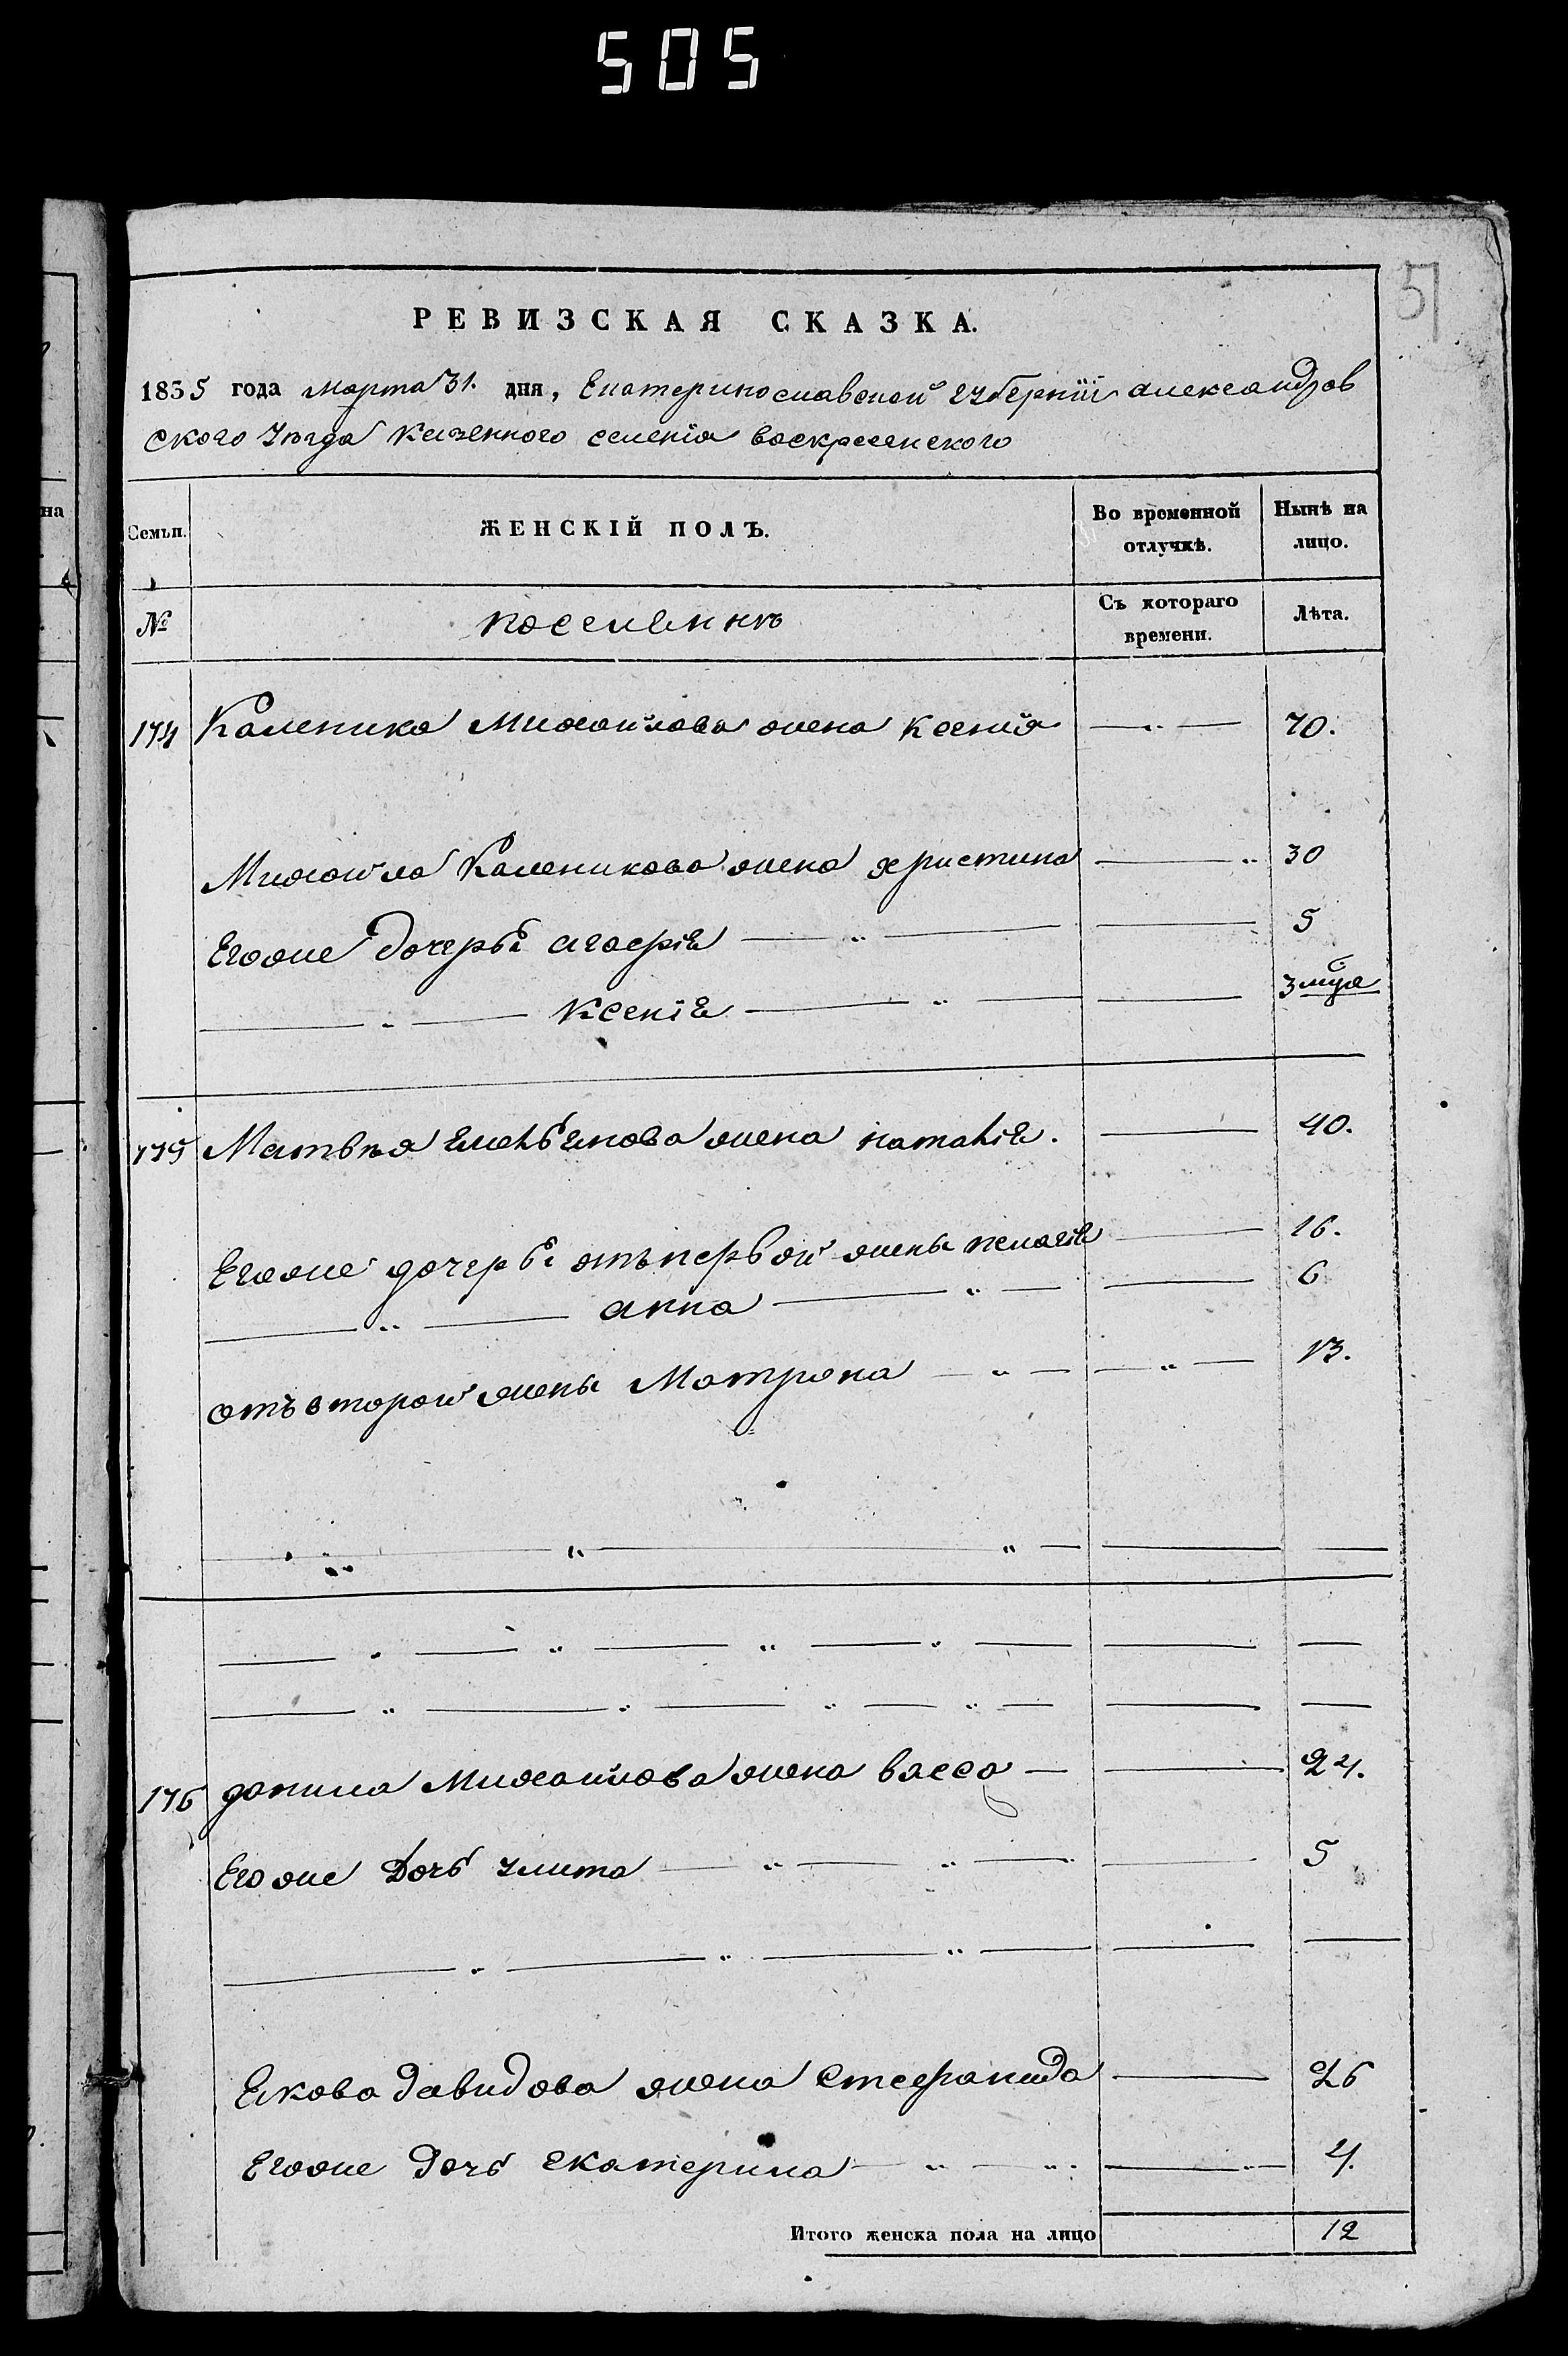 505
51
РЕВИЗСКАЯ СКАЗКА.
1835 года марта 31. дня, Екатеринославской губернїи александров
ского уѣзда казенного селенїя воскресенского
на
Семьи. ЖЕНСКІЙ ПОЛЪ. Во временной отлучкѣ. Нынѣ на лицо.
№ поселянкъ Съ котораго времени. Лѣта.
174 Каленика Михайлова жена ксенїя 70.
Михайла Каленикова жена христина 30
Егоже дочери агафія 5
ксенія 3 мця
175 Матвѣя жена наталія. 40.
Егоже дочери отъ первой жены пелагія 16.
анна 6
отъ второй жены Матрона 13.
176 данила Михайлова жена васса 24.
Егоже Дочь улита 5
Якова давидова жена Стефанида 26
Егоже дочь екатерина 4.
Итого женска пола на лицо 12